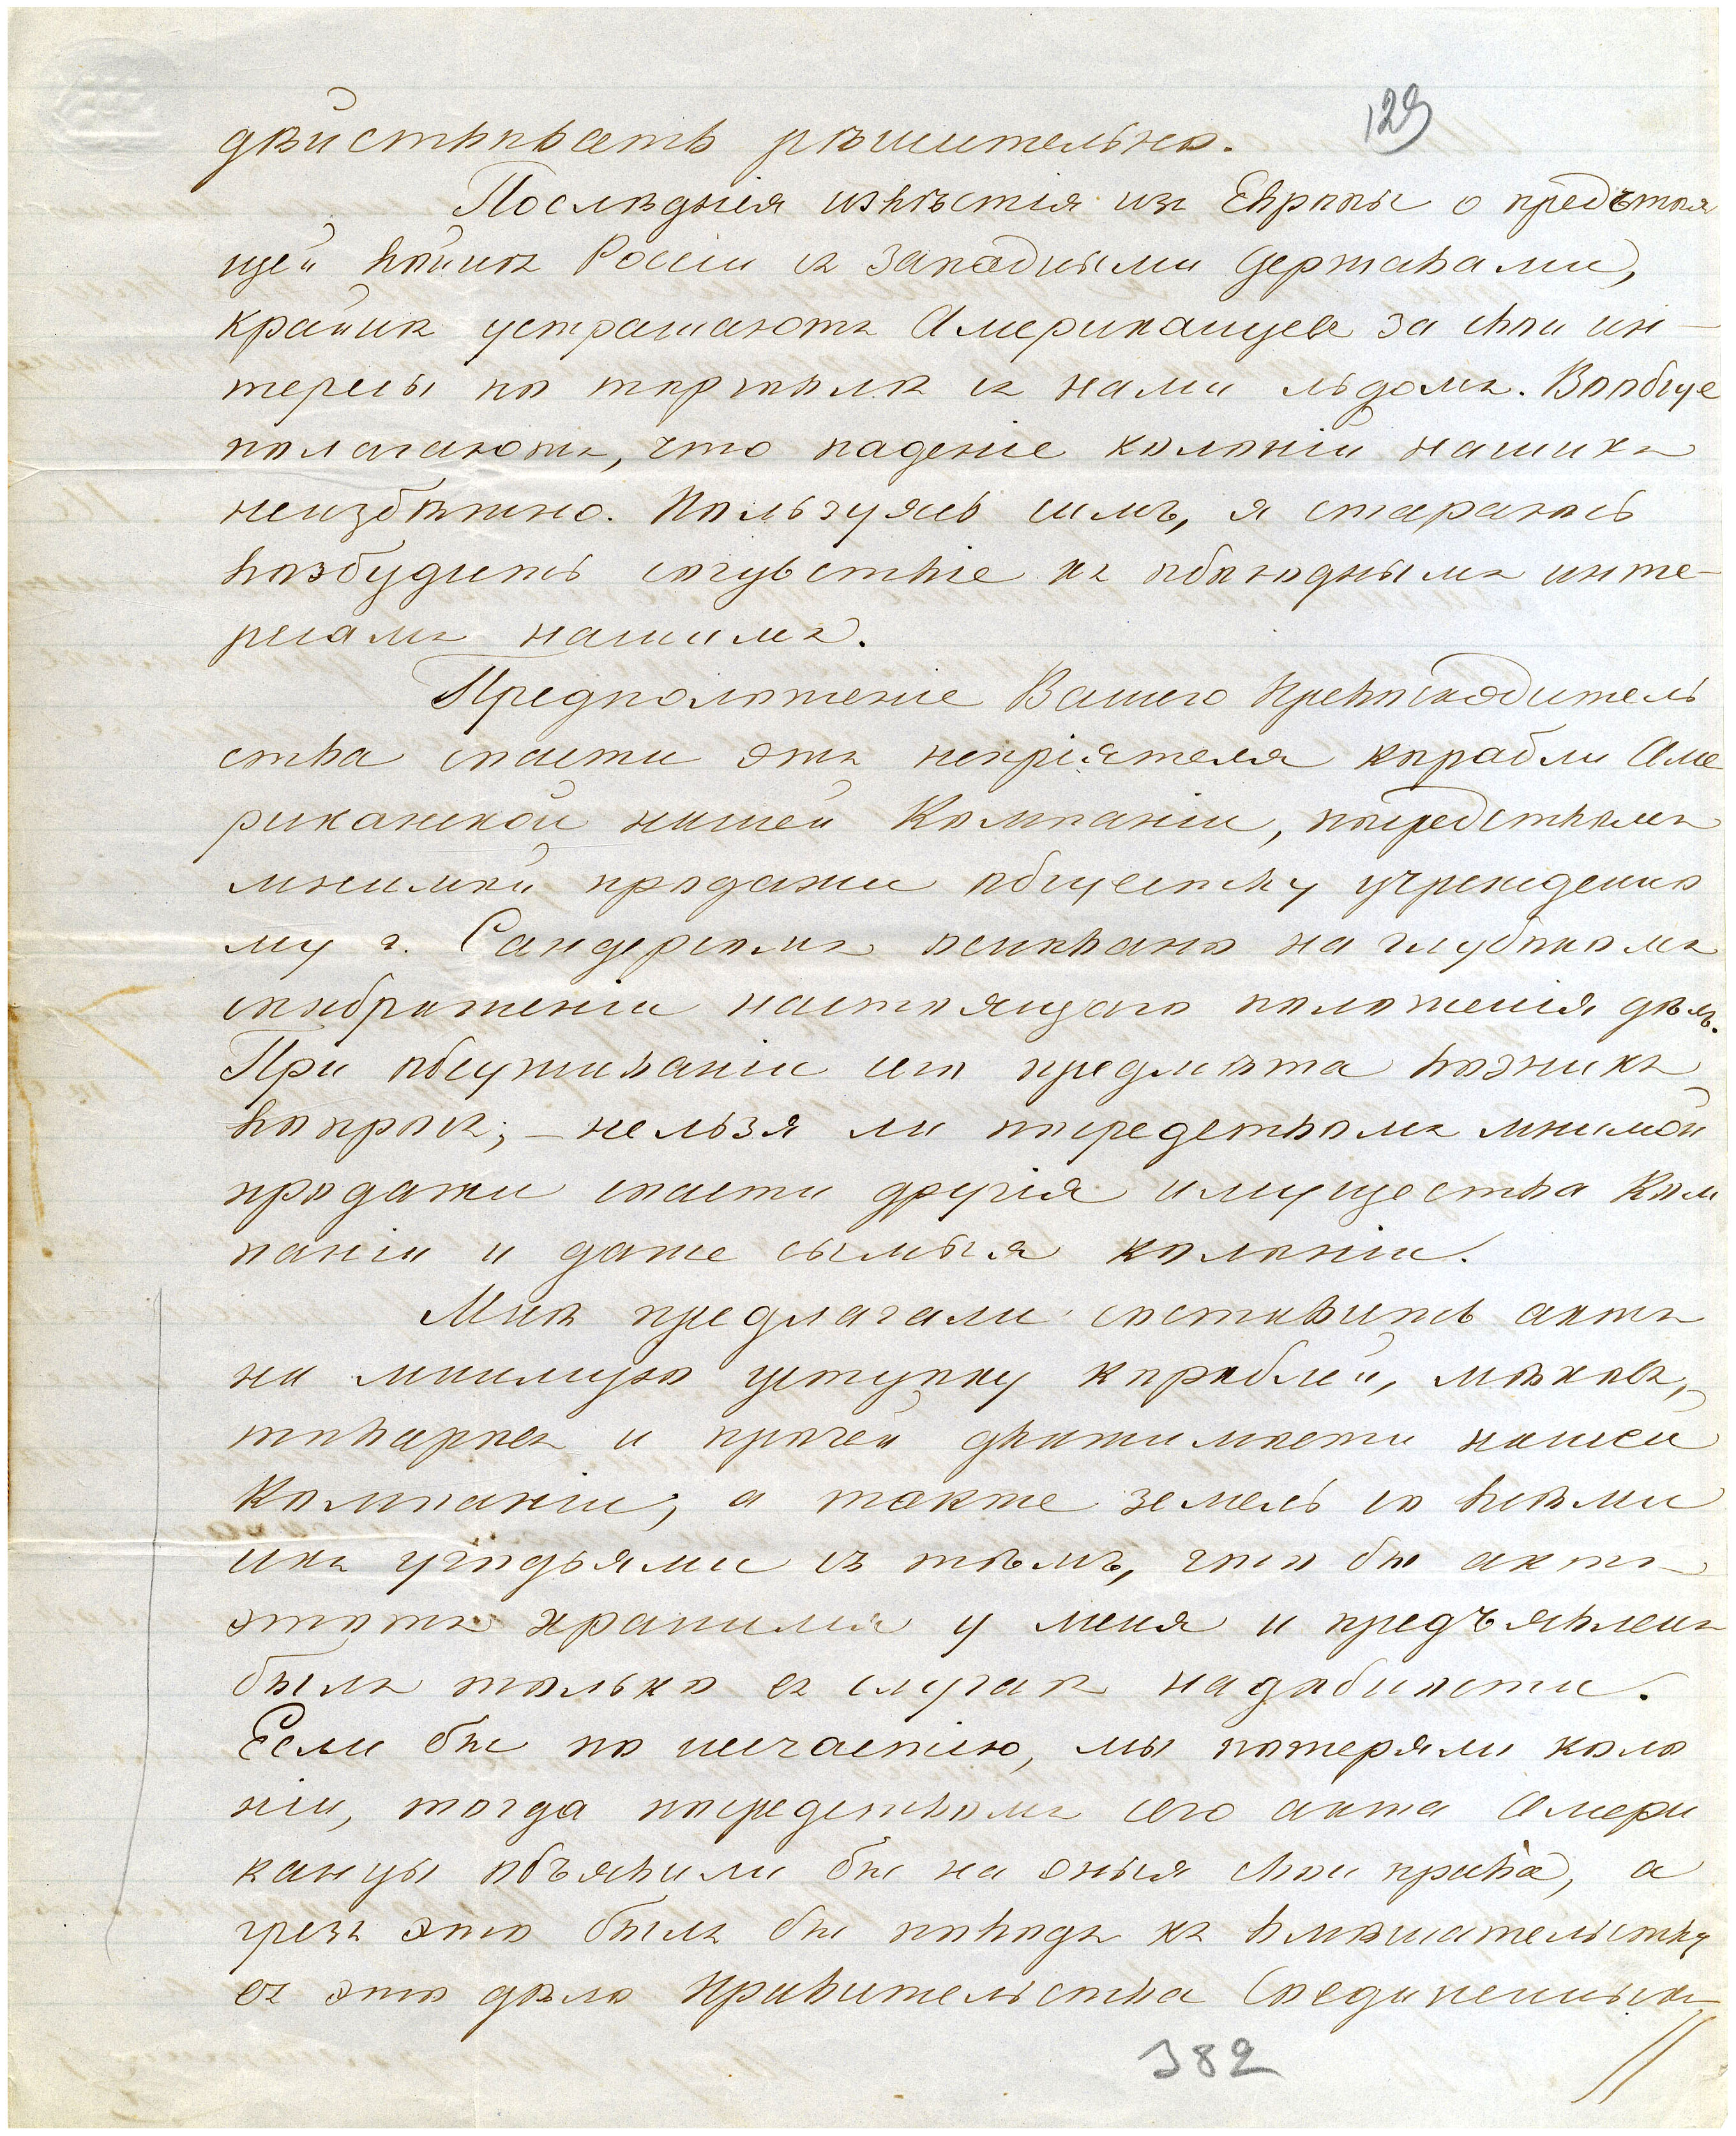 129
дѣйствовать рѣшительно.
Послѣднія извѣстія изъ Европы о предстоя
щей войнѣ Россіи съ Западными Державами,
крайнѣ устрашаютъ Американцевъ за свои ин-
тересы по торговлѣ съ нами льдомъ. Вообще
полагаютъ, что паденіе колоній нашихъ
неизбѣжно. Пользуясь симъ, я стараюсь
возбудить сочувствіе къ обоюднымъ инте-
ресамъ нашимъ.
Предположеніе Вашего Превосходитель
ства спасти отъ непріятеля корабли Аме
риканской нашей Компаніи, посредствомъ
мнимой продажи обществу учрежденно
му г. Сандерсомъ основано на глубокомъ
соображеніи настоящаго положенія дѣлъ.
При обсуживаніи сего предмѣта возникъ
вопросъ; - нельзя ли посредствомъ мнимой
продажи спасти другія имущества Ком
паніи и даже самыя колоніи.
Мнѣ предлагали составить актъ
на мнимую уступку кораблей, мѣховъ,
товаровъ и прочей движимости нашей
Компаніи, а также земель со всѣми
ихъ угодьями съ тѣмъ, что бы актъ
этотъ хранился у меня и предъявленъ
былъ только въ случаѣ надобности.
Если бы по несчастію, мы потеряли коло
ніи, тогда посредствомъ сего акта Амери
канцы объявили бы на оныя свои права, а
чрезъ это былъ бы поводъ къ вмѣшательству
въ это дѣло Правительства Соединенныхъ
382